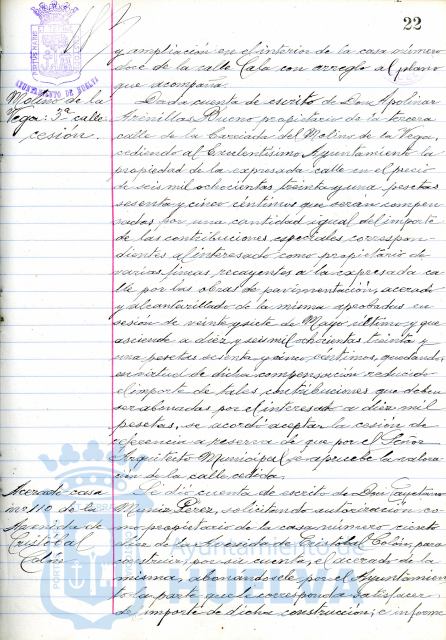 22
AYUNTAMIENTO DE HUELVA
y ampliación en el interior de la casa número
doce de la calle Cala con arreglo al plano
que acompaña.
Molino de la
Vega: 3ª calle
cesión.
Dada cuenta de escrito de Don Apolinar
Arenillas Bueno propietario de la tercera
calle de la Barriada del Molino de la Vega,
cediendo al Excelentísimo Ayuntamiento la
propiedad de la expresada calle en el precio
de seis mil ochocientas treinta y una pesetas
sesenta y cinco céntimos que serán compen-
sadas por una cantidad igual del importe
de las contribuciones especiales correspon-
dientes al interesado como propietario de
varias fincas recayentes a la expresada ca-
lle por las obras de pavimentación, acerado
y alcantarillado de la misma aprobadas en
sesión de veintysiete de Mayo último y que
asciende a diez y seis mil ochocientas treinta y
una pesetas sesenta y cinco céntimos, quedando
en virtud de dicha compensación reducido
el importe de tales contribuciones que deben
ser abonadas por el interesado a diez mil
pesetas, se acordó aceptar la cesión de
referencia a reserva de que por el Señor
Arquitecto Municipal se apruebe la valora-
ción de la calle cedida.
Acerado casa
nº 110 de la
Avenida de
Cristóbal
Colón
Se dio cuenta de escrito de Don Cayetano
Muñiz Pérez, solicitando autorización co-
mo propietario de la casa número ciento
diez de la Avenida de Cristóbal Colón, para
construir, por su cuenta, el acerado de la
misma, abonándosele por el Ayuntamien-
to la parte que le corresponda satisfacer
de importe de dicha construcción; e informe
Ayuntamiento de
HUELVA